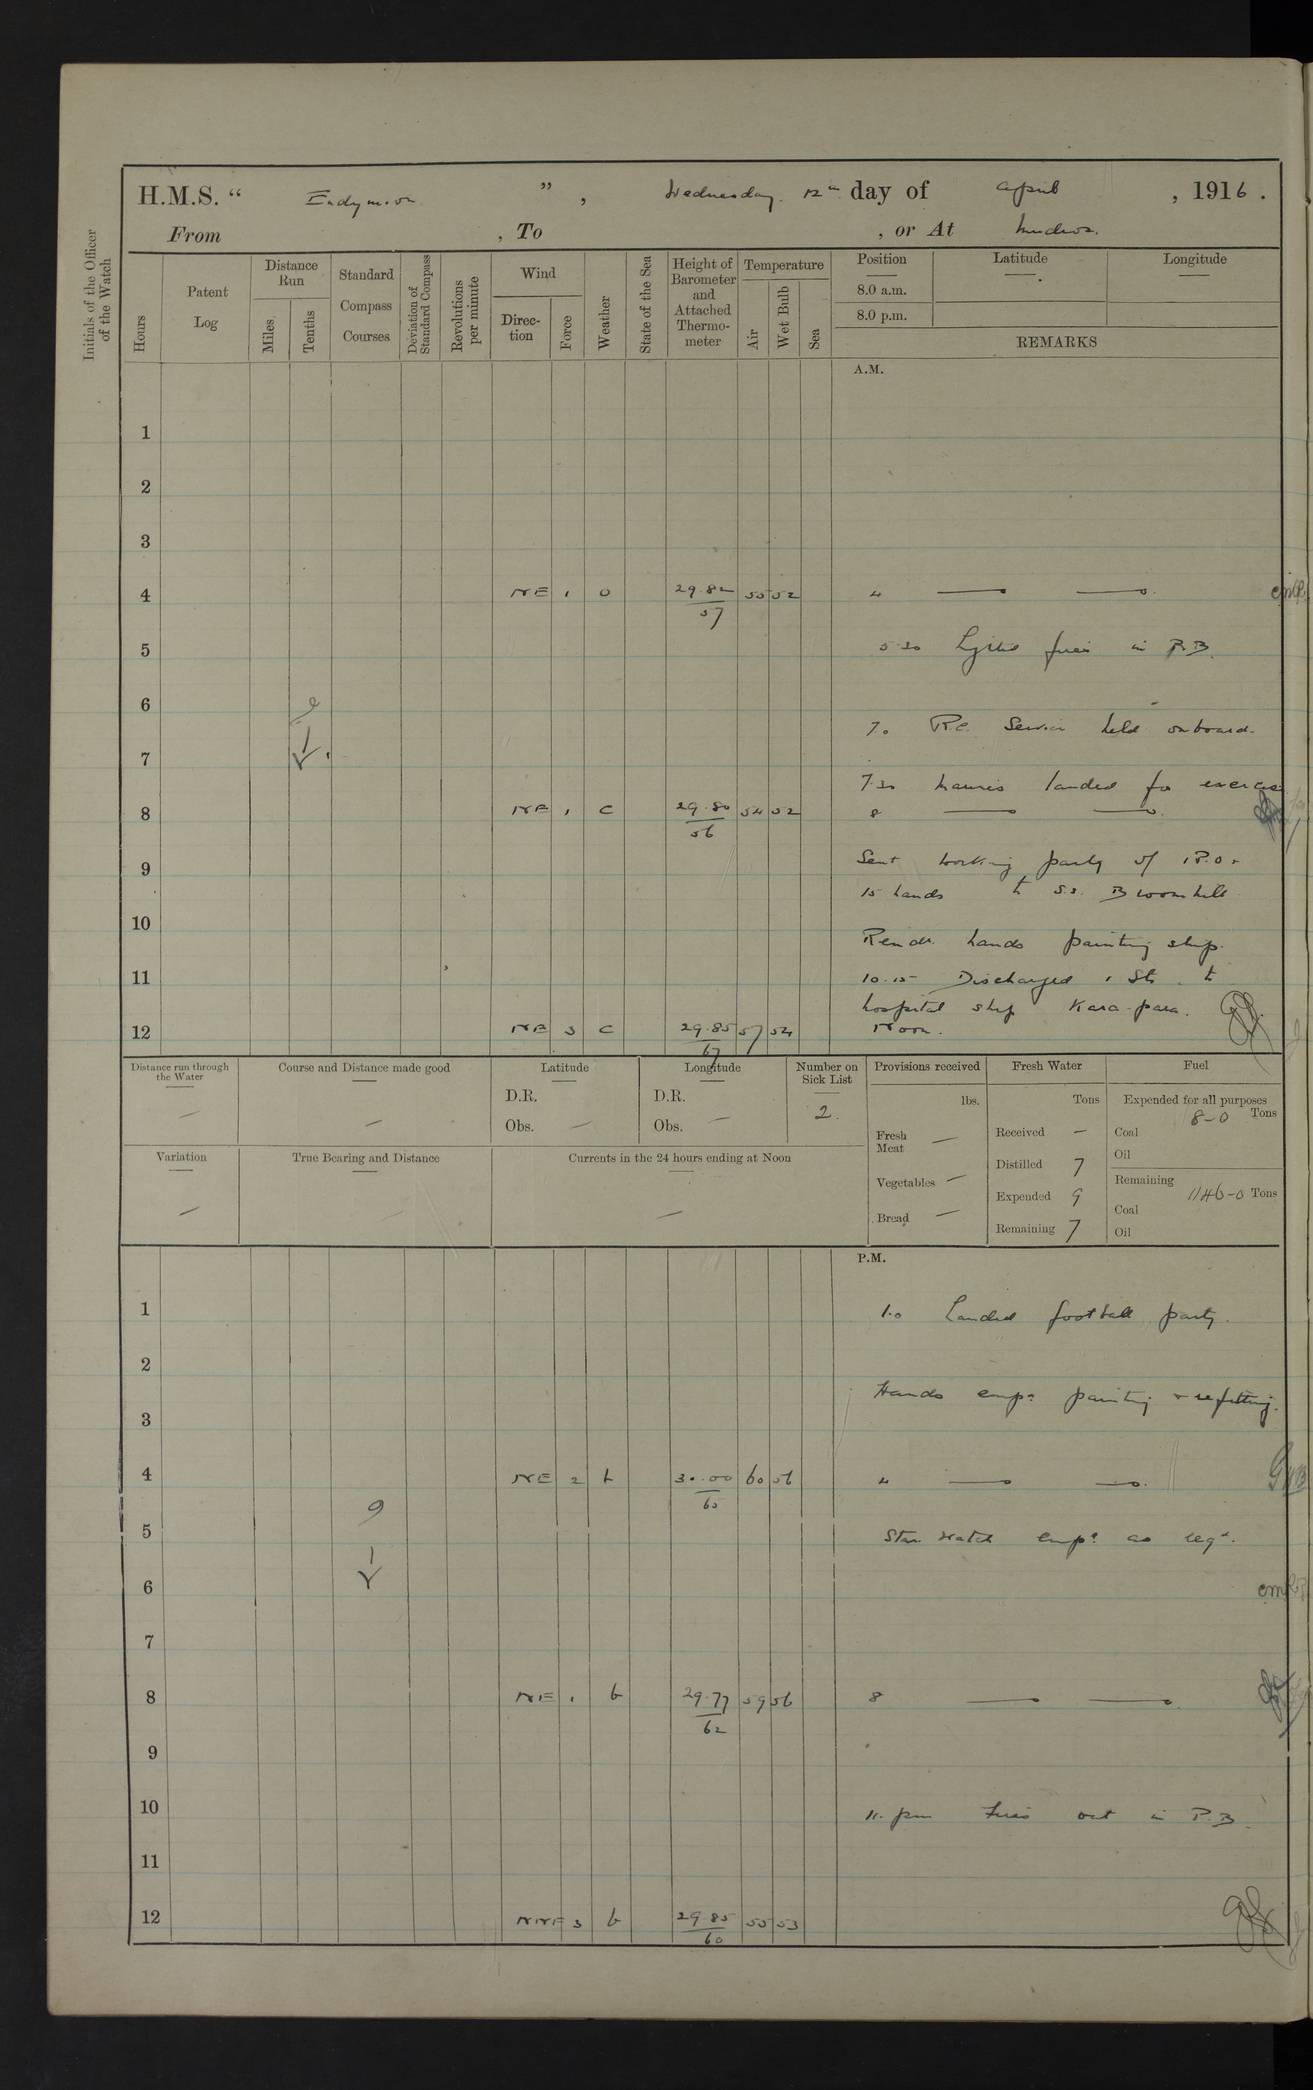 H.M.S. “ Endymion ”, Wednesday 12th day of April , 1916 .
From , To , or At Mudros.
Initials of the Officer of the Watch
Hours
Patent Log
Distance Run
Miles
Tenths
Standard Compass Courses
Deviation of Standard Compass
Revolutions per minute
Wind
Direc- tion
Force
Weather
State of the Sea
Height of Barometer and Attached Thermo- meter
Temperature
Air
Wet Bulb
Sea
Position Latitude Longitude
8.0 a.m.
8.0 p.m.
REMARKS
A.M.
1
2
3
4 NE 1 o 29.82 55 52 4
57
5 5.30 Lighted fires in P.B.
6
7.0 R.C. Service held onboard.
7
7.30 Marines landed for exercise
8 NE 1 c 29.80 54 52 8
56
Sent working party of 1 P.O. +
9
15 hands to S.S. Broomhill
10
Remdr. hands painting ship.
11 10.15 Discharged 1 Sto. to
hospital ship Karapara.
12 NE 3 c 29.85 57 54 Noon.
67
Distance run through the Water
Course and Distance made good
Latitude
D.R.
Obs. —
Longitude
D.R.
Obs. —
Number on Sick List
2.
Provisions received
lbs.
Fresh Meat —
Vegetables —
Bread —
Fresh Water
Tons
Received —
Distilled 7
Expended 9
Remaining 7
Fuel
Expended for all purposes
8-0 Tons
Coal
Oil
Remaining
1146-0 Tons
Coal
Oil
Variation
True Bearing and Distance
Currents in the 24 hours ending at Noon
P.M.
1 1.0 Landed football party.
2
Hands empd painting & refitting.
3
4 NE 2 b 30.00 60 56 4
65
5 Star watch empd as reqd.
6
7
8 NE 1 b 29.77 59 56 8
62
9
10 11. pm Fires out in P.B.
11
12 NNE 3 b 29.85 55 53
60